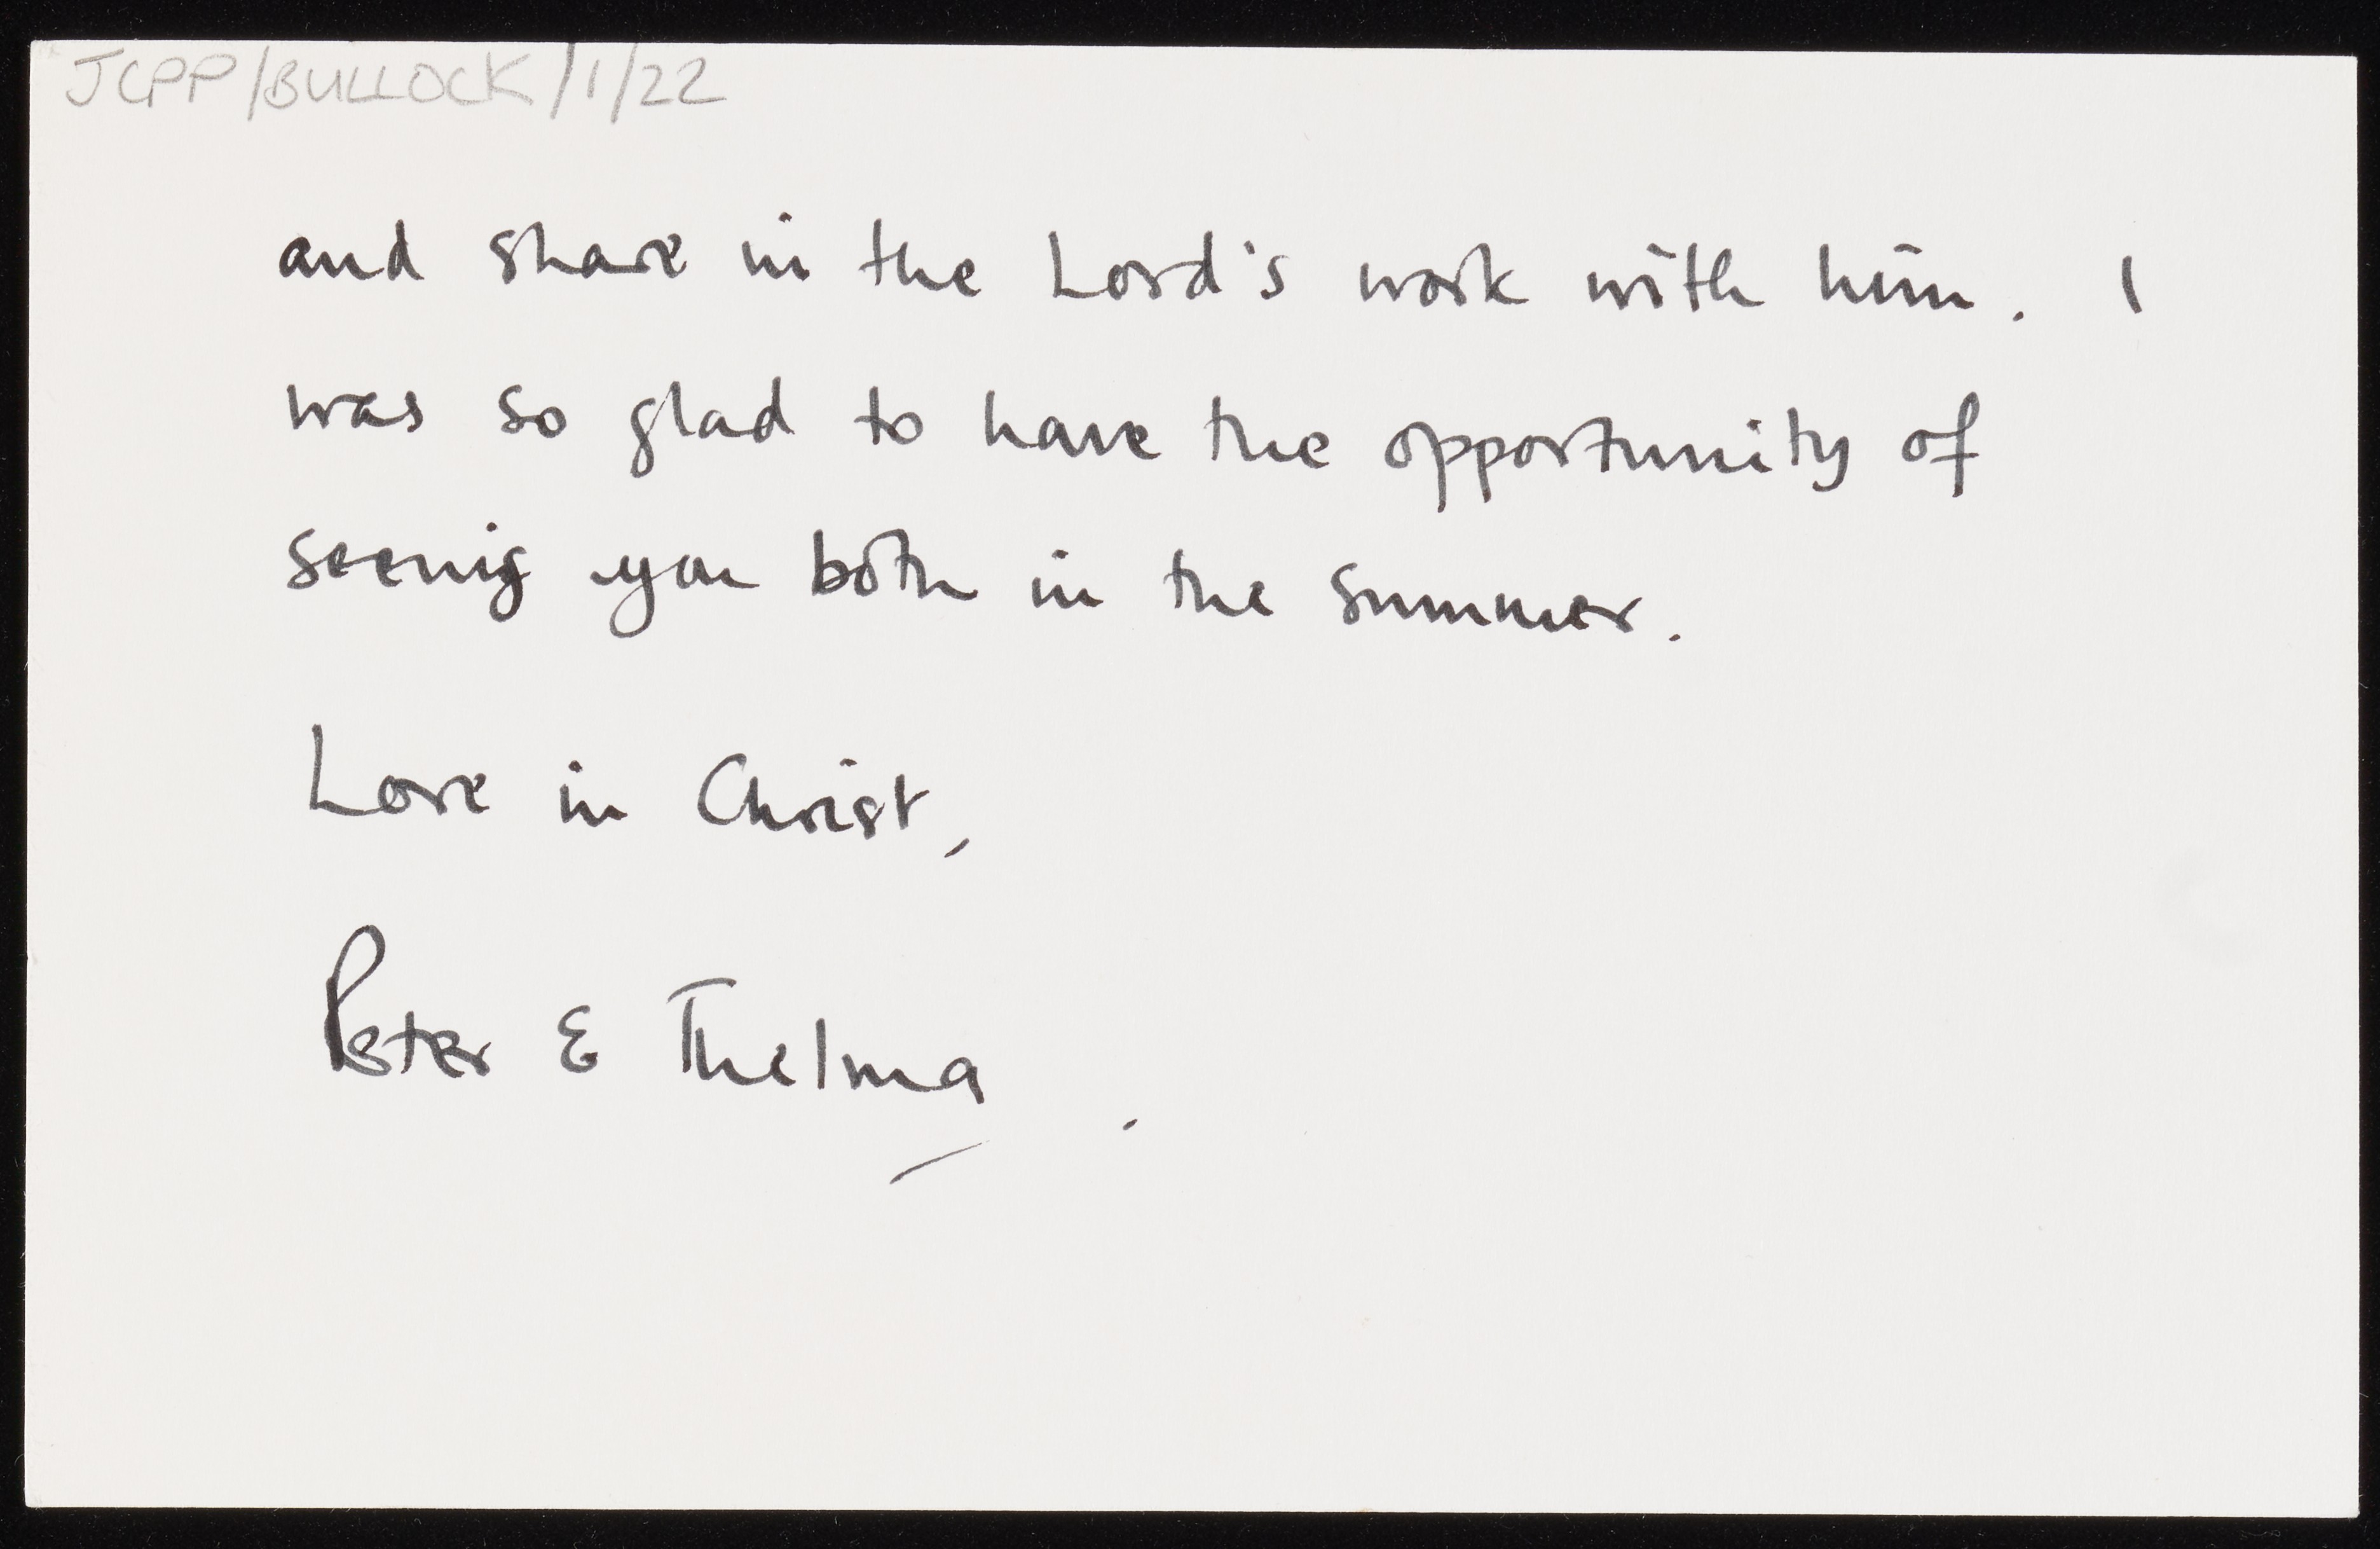 JCPP/BULLOCK/1/22
and share in the Lord's work with him. I
was so glad to have the opportunity of
seeing you both in the summer.
Love in Christ,
Peter & Thelma.